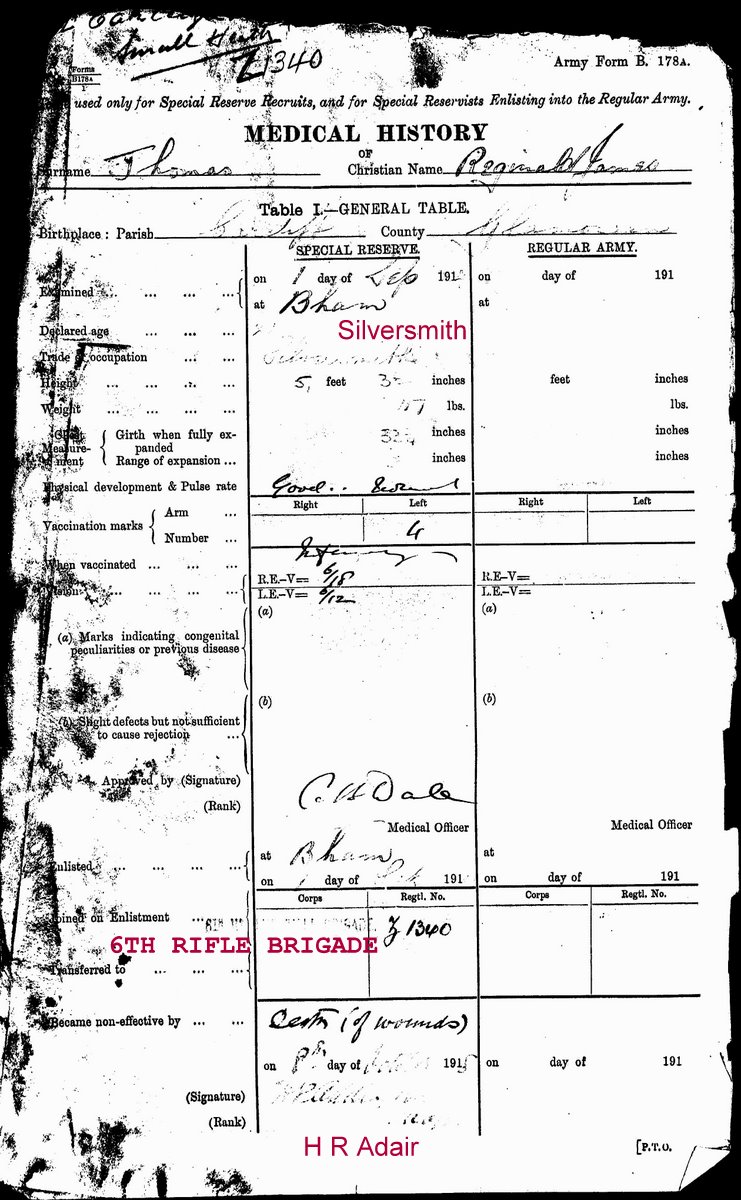 Small Heath
Z1340
Army Form B. 178A.
Forms
B178A
used only for Special Reserve Recruits, and for Special Reservists Enlisting into the Regular Army.
MEDICAL HISTORY
OF
Surname Thomas Christian Name Reginald James
Table I.—GENERAL TABLE.
Birthplace : Parish Cardiff County Glamorgan
SPECIAL RESERVE. REGULAR ARMY.
Examined ... ... ... ... on 1 day of Sep 191 on day of 191
at Bham at
Declared age ... ... ...
Silversmith
Trade or occupation ... ... Silversmith
Height ... ... ... ... 5, feet 3 inches feet inches
Weight ... ... ... ... lbs. lbs.
Chest Measurement Girth when fully expanded 32 inches inches
Range of expansion ... inches inches
Physical development & Pulse rate Good..
Right Left Right Left
Vaccination marks Arm ...
Number ... 4
When vaccinated ... ... ... Infancy
Vision ... ... ... R.E.–V= 6/18 R.E–V=
L.E.–V= 6/12 L.E.–V=
(a) (a)
(a) Marks indicating congenital
peculiarities or previous disease
(b) (b)
(b) Slight defects but not sufficient
to cause rejection ...
Approved by (Signature) C. H Dale
(Rank)
Medical Officer Medical Officer
Enlisted ... ... ... ... at Bham at
on 1 day of 191 on day of 191
Corps Regtl. No. Corps Regtl. No.
Joined on Enlistment ... Z 1340
6TH RIFLE BRIGADE
Transferred to ... ... ...
Became non-effective by ... ... Death (of wounds)
on 8th day of 1915 on day of 191
(Signature)
(Rank)
H R Adair
[P.T.O.